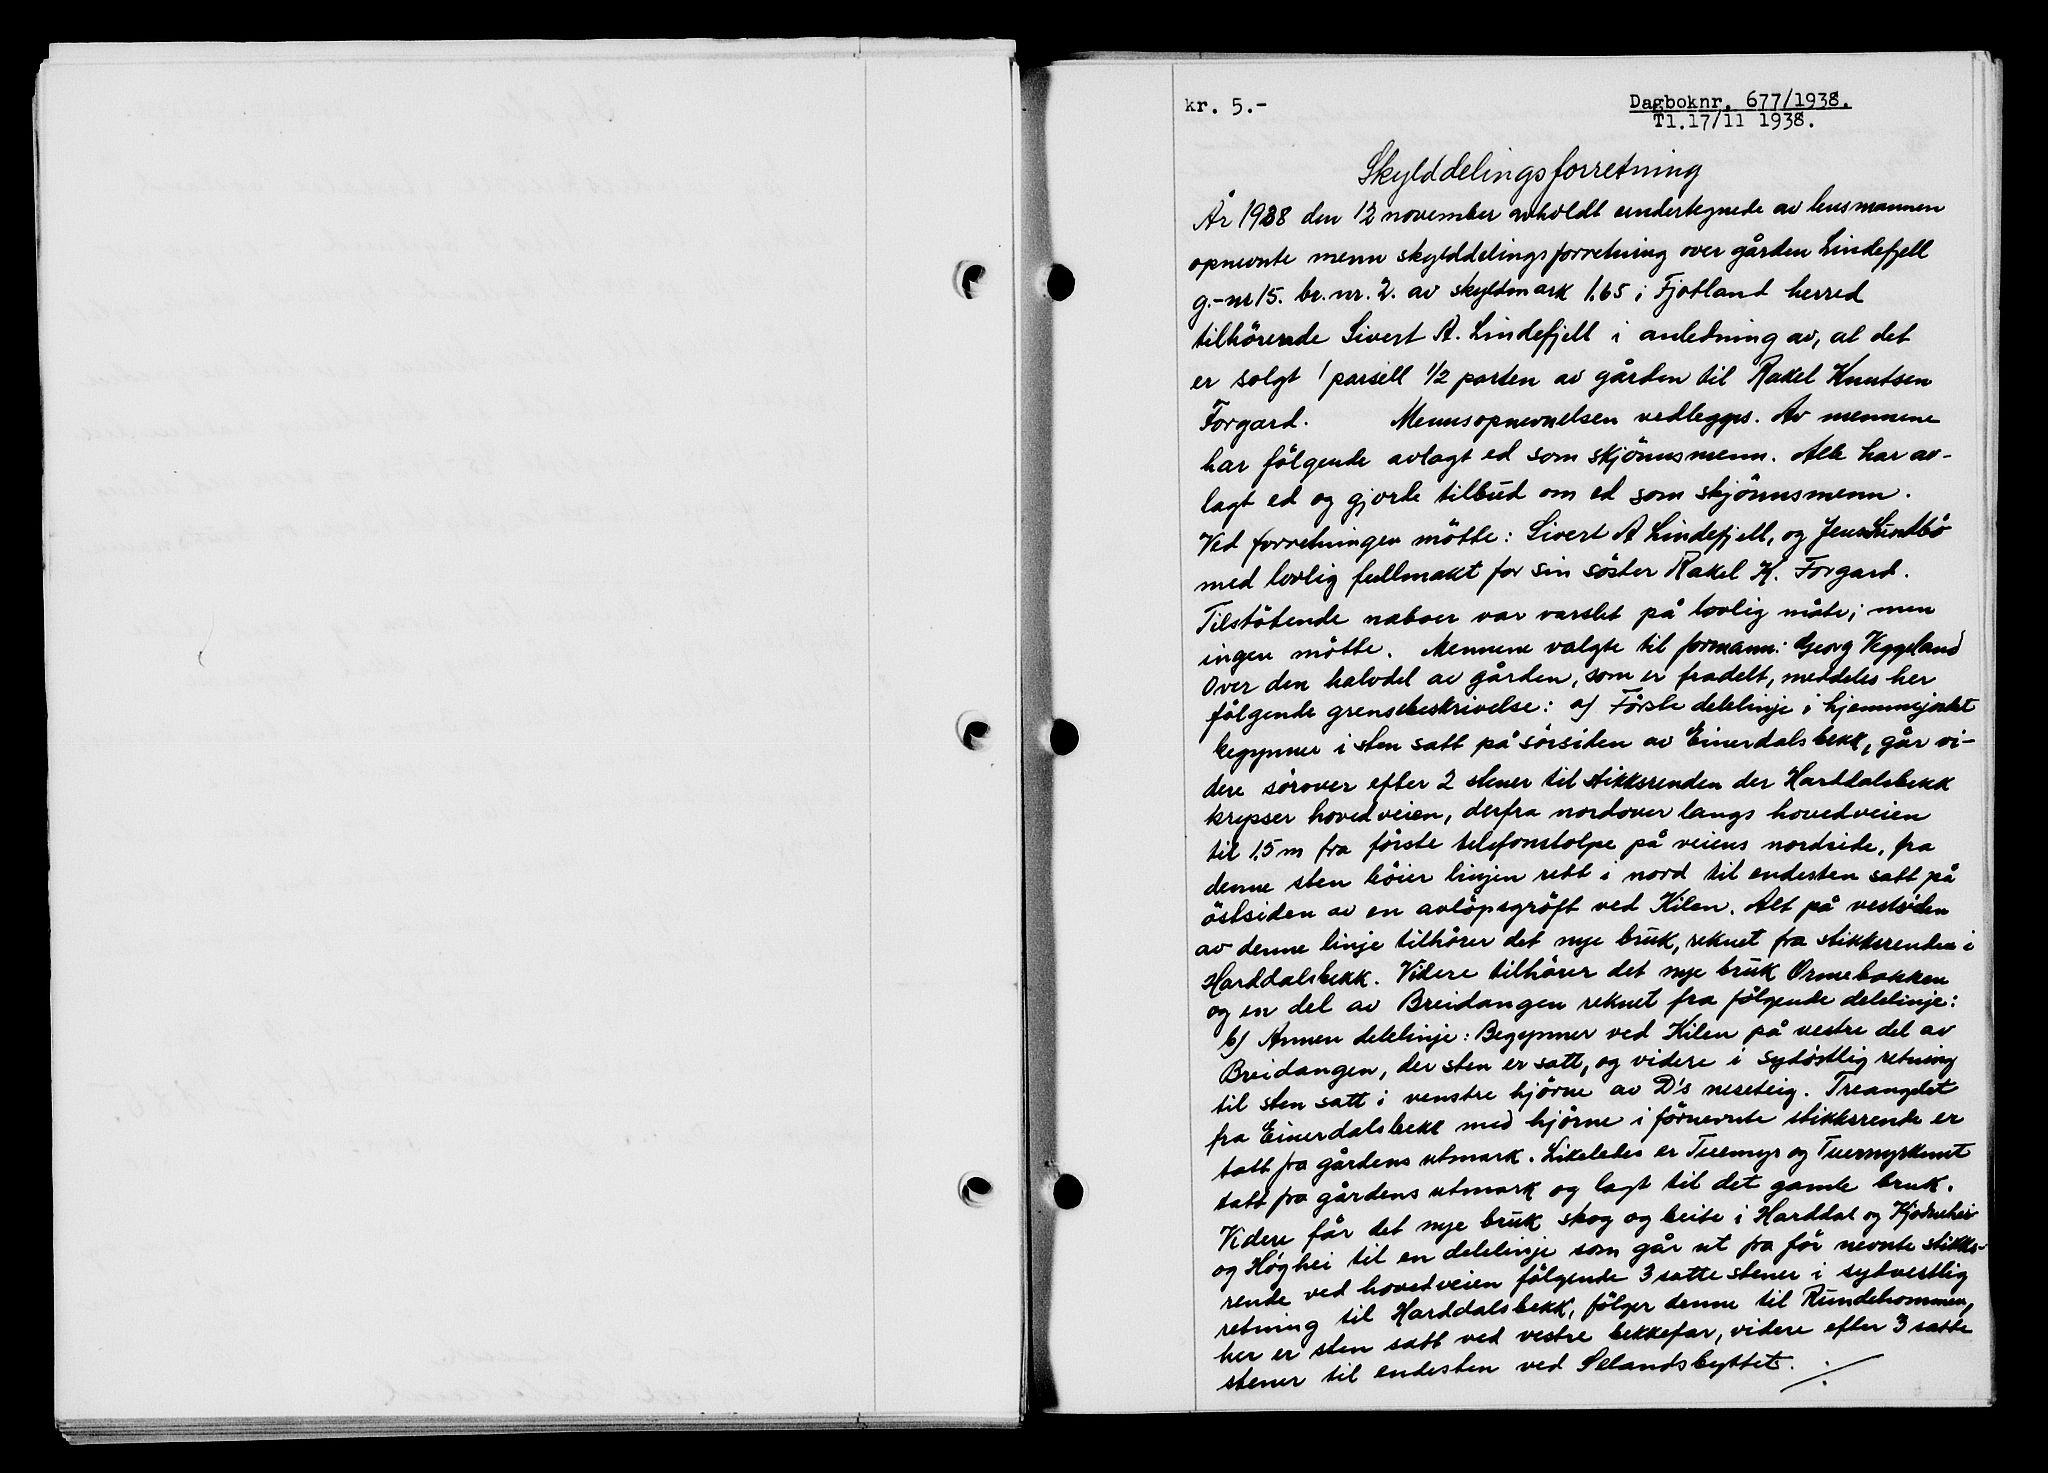 kr. 5.-
Dagboknr. 677/1938.
Tl.17/11 1938.
Skylddelingsforretning
År 1938 den 12 november avholdt undertegnede av lensmannen
opnevnte menn skylddelingsforretning over gården Lindefjell
g.-nr 15. br.nr. 2. av skyldmark 1.65 i Fjotland herred
tilhörende Sivert A. Lindefjell i anledning av, at det
er solgt 1 parsell 1/2 parten av gården til Rakel Knutsen
Forgard. Mennsopnevnelsen vedlegges. Av mennene
har fölgende avlagt ed som skjönnsmenn. Alle har av-
lagt ed og gjorde tilbud om ed som skjönnsmenn.
Ved forretningen mötte: Sivert A Lindefjell, og Jens Lindbö
med lovlig fullmakt for sin söster Rakel K. Forgard.
Tilstötende naboer var varslet på lovlig måte; men
ingen mötte. Mennene valgte til formann: Georg Veggeland
Over den halvdel av gården, som er fradelt, meddeles her
fölgende grensebeskrivelse: a) Förste delelinje i hjemmejordet
begynner i sten satt på sörsiden av Einerdalsbekk, går vi-
dere sörover efter 2 stener til stikksrenden der Harddalsbekk
krysser hovedveien, derfra nordover langs hovedveien
til 1,5 m fra förste telefonstolpe på veiens nordside, fra
denne sten böier linjen rett i nord til endesten satt på
östsiden av en avlöpsgröft ved Kilen. Alt på vestsiden
av denne linje tilhörer det nye bruk, reknet fra stikksrenden i
Harddalsbekk. Videre tilhörer det nye bruk Ormebakken
og en del av Breidangen reknet fra fölgende delelinje:
b) Annen delelinje: Begynner ved Kilen på vestre del av
Breidangen, der sten er satt, og videre i sydöstlig retning
til sten satt i venstre hjörne av D's neseteig. Treangelet
fra Einerdalsbekk med hjörne i förnevnte stikksrende er
tatt fra gårdens utmark. Likeledes er Tuemyr og Tuemyrkunt
tatt fra gårdens utmark og lagt til det gamle bruk.
Videre får det nye bruk skog og beite i Harddal og Kjodnehei
og Höghei til en delelinje som går ut fra för nevnte stikks-
rende ved hovedveien fölgende 3 satte stener i sydvestlig
retning til Harddalsbekk, fölger denne til Rundehommen,
her er sten satt ved vestre bekkefar, videre efter 3 satte
stener til endesten ved Selandsbyttet. ./.